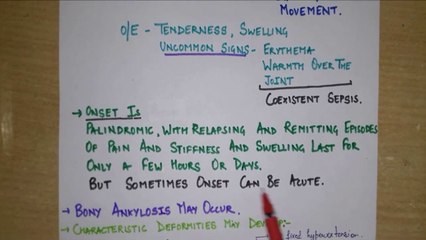 MOVEMENT.
O/E - TENDERNESS, SWELLING
UNCOMMON SIGNS - ERYTHEMA
WARMTH OVER THE
JOINT
COEXISTENT SEPSIS.
→ ONSET IS
PALINDROMIC, WITH RELAPSING AND REMITTING EPISODES
OF PAIN AND STIFFNESS AND SWELLING LAST FOR
ONLY A FEW HOURS OR DAYS.
BUT SOMETIMES ONSET CAN BE ACUTE.
→ BONY ANKYLOSIS MAY OCCUR.
→ CHARACTERISTIC DEFORMITIES MAY DEVELOP:-
fixed hyperextension.